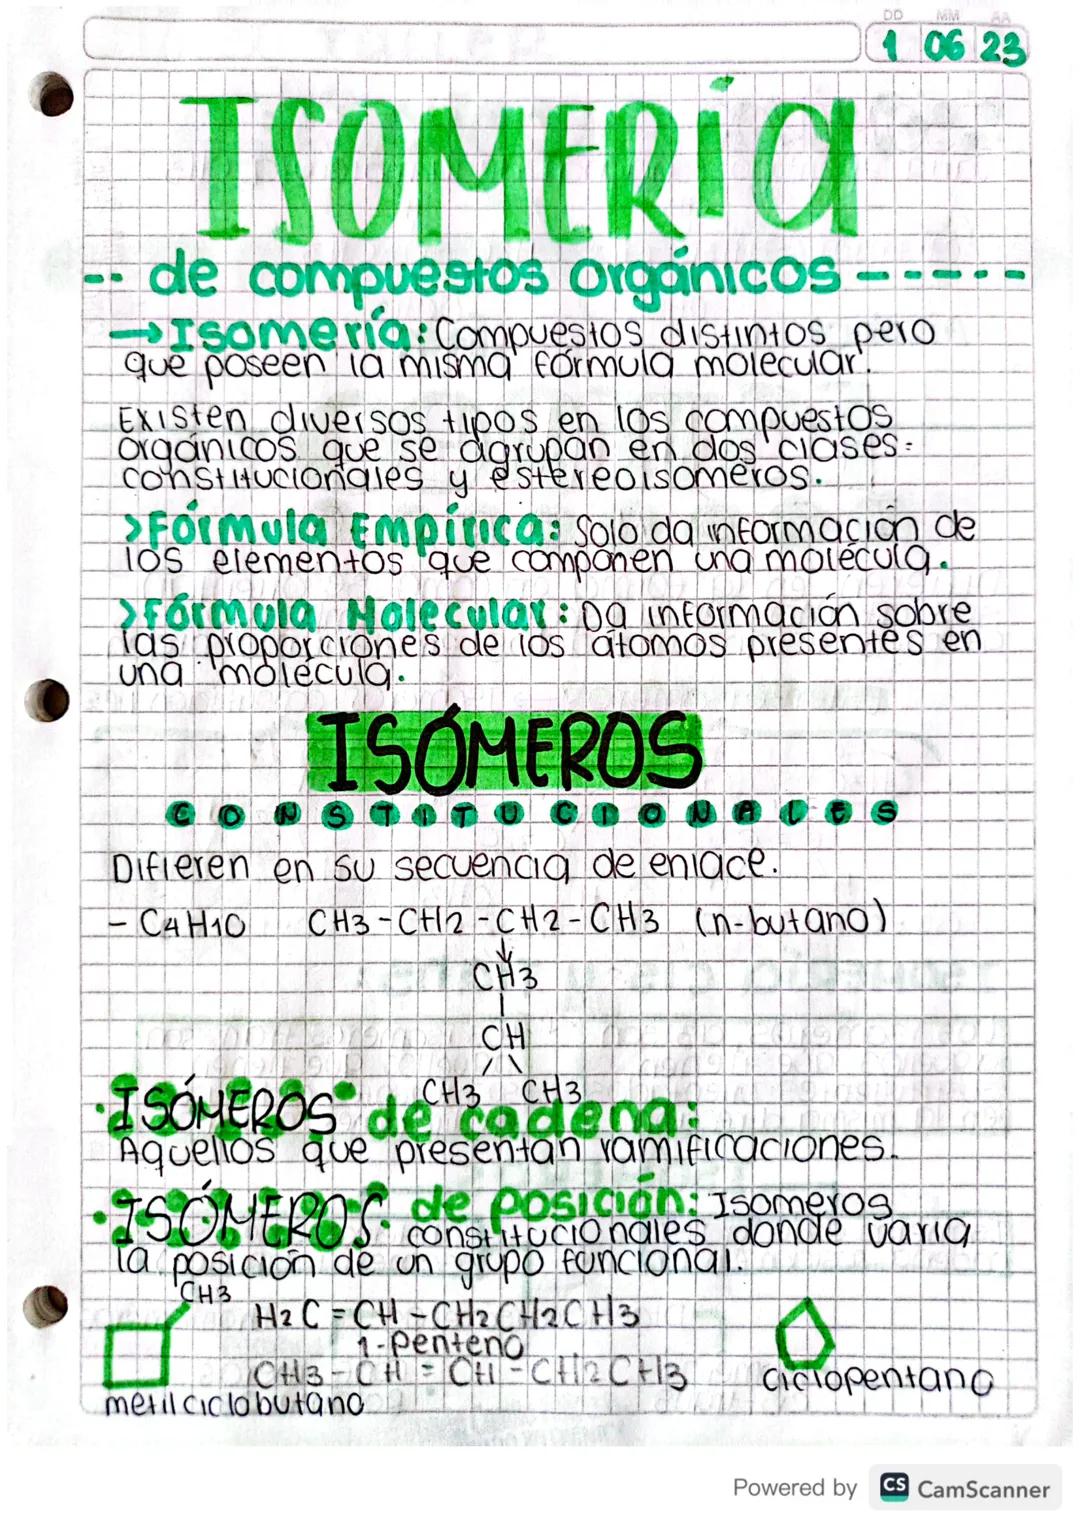 DD MM AA
1 06 23
ISOMERÍA
-- de compuestos orgánicos -----
→Isomería: Compuestos distintos pero
que poseen la misma fórmula molecular.
Existen diversos tipos en los compuestos
orgánicos que se agrupan en dos clases:
constitucionales y estereoisomeros.
>Fórmula Empírica: Solo da información de
los elementos que componen una molécula.
>Fórmula Molecular: Da información sobre
las proporciones de los átomos presentes en
una molécula.
ISÓMEROS
CONSTITUCIONALES
Difieren en su secuencia de enlace.
- C4H10 CH3-CH2-CH2-CH3 (n-butano)
CH3
CH
CH3 CH3
•ISÓMEROS de cadena:
Aquellos que presentan ramificaciones.
•ISÓMEROS de posición: Isomeros
constitucionales donde varia
la posición de un grupo funcional.
CH3
H2C=CH-CH2CH2CH3
1-Penteno
CH3-CH=CH-CH2CH3
ciclopentano
metilciclobutano
Powered by CS CamScanner